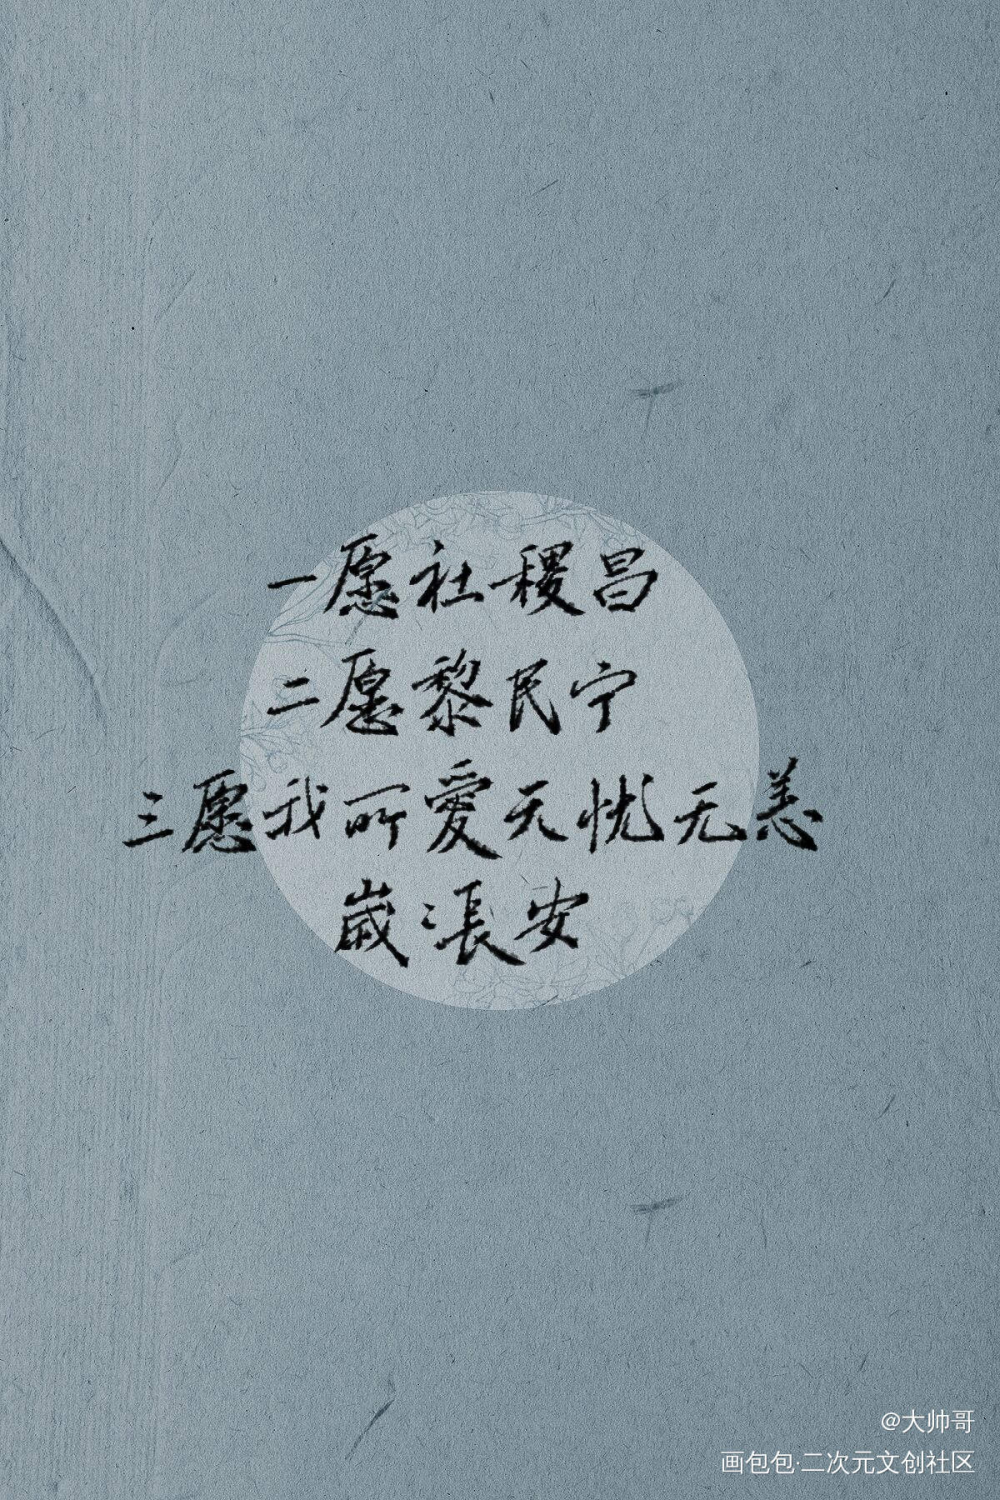 一愿社稷昌
二愿黎民宁
三愿我所愛无忧无恙
歲〻長安
@大帅哥
画包包·二次元文创社区